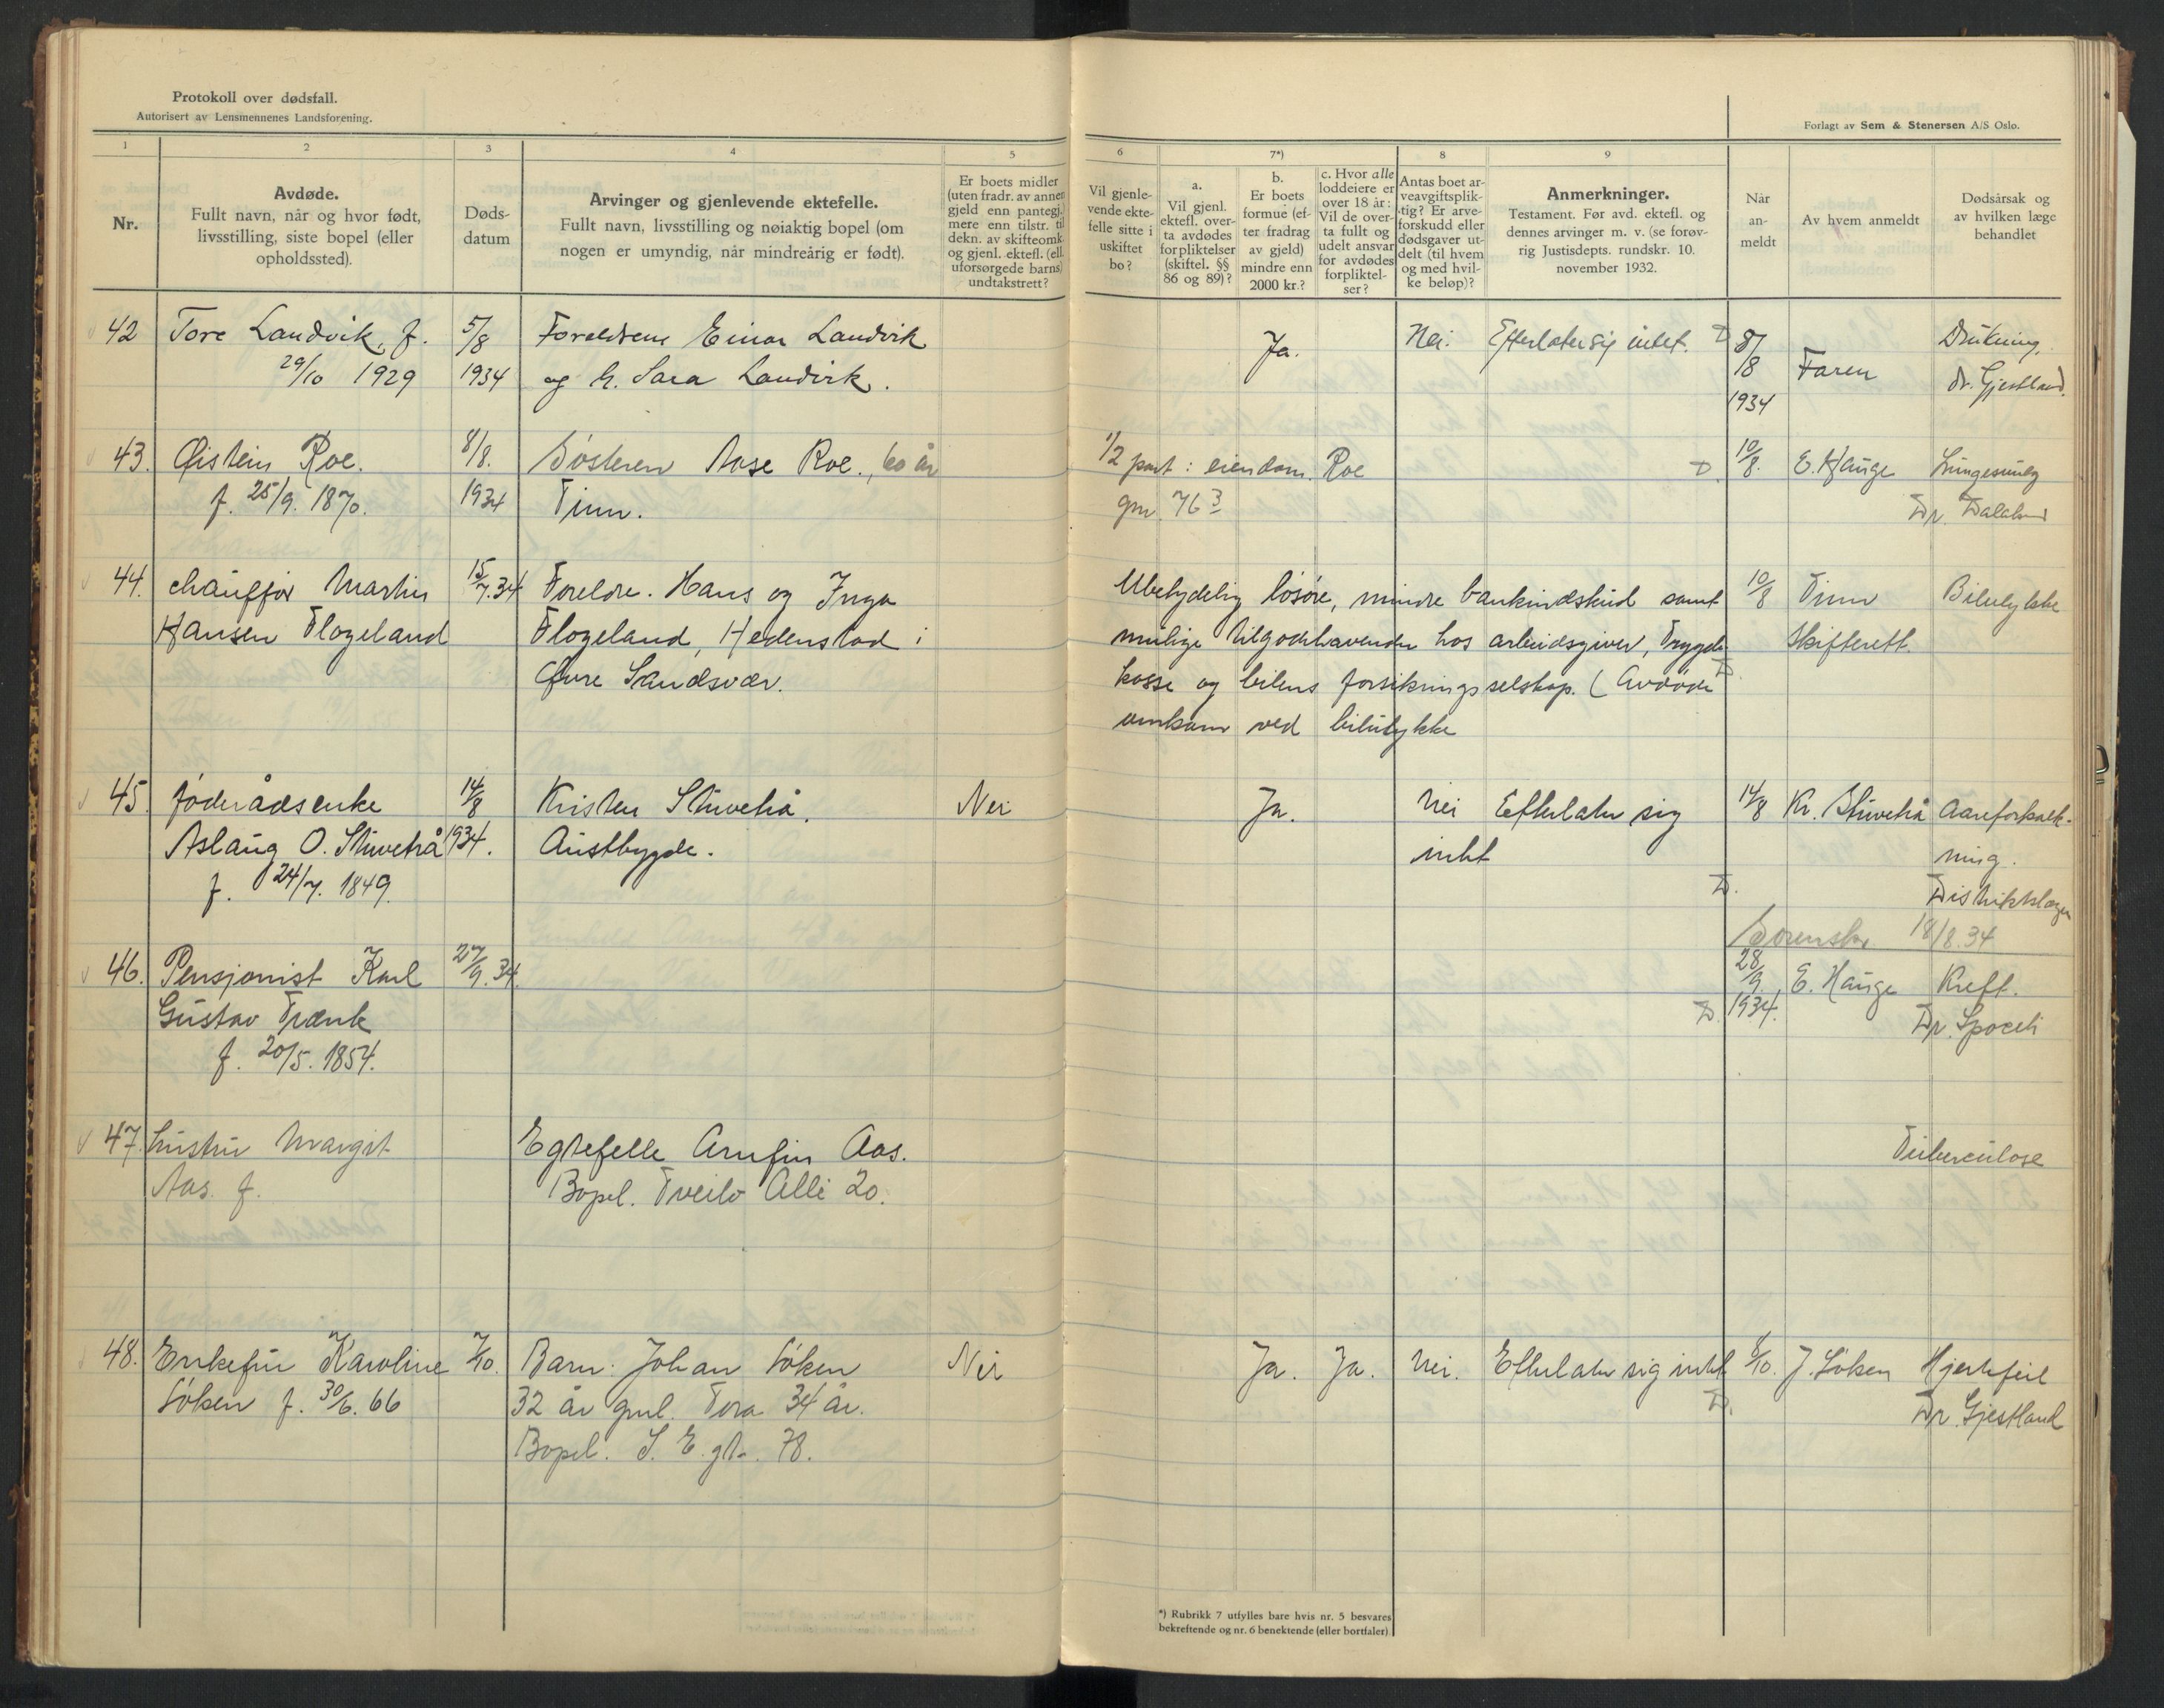 Protokoll over dødsfall.
Autorisert av Lensmennenes Landsforening.
Forlagt av Sem & Stenersen A/S Oslo.
1 2 3 4 5 6 7*) 8 9
Nr.
Avdøde.
Fullt navn, når og hvor født,
livsstilling, siste bopel (eller
opholdssted).
Døds-
datum
Arvinger og gjenlevende ektefelle.
Fullt navn, livsstilling og nøiaktig bopel (om
nogen er umyndig, når mindreårig er født).
Er boets midler
(uten fradr. av annen
gjeld enn pantegj.)
mere enn tilstr. til
dekn. av skifteomk.
og gjenl. ektefl. (ell.
uforsørgede barns)
undtakstrett?
Vil gjenle-
vende ekte-
felle sitte i
uskiftet
bo?
a.
Vil gjenl.
ektefl. over-
ta avdødes
forpliktelser
(skiftel. §§
86 og 89)?
b.
Er boets
formue (ef-
ter fradrag
av gjeld)
mindre enn
2000 kr.?
c. Hvor alle
loddeiere er
over 18 år:
Vil de over-
ta fullt og
udelt ansvar
for avdødes
forpliktel-
ser?
Antas boet ar-
veavgiftsplik-
tig? Er arve-
forskudd eller
dødsgaver ut-
delt (til hvem
og med hvil-
ke beløp)?
Anmerkninger.
Testament. Før avd. ektefl. og
dennes arvinger m. v. (se forøv-
rig Justisdepts. rundskr. 10.
november 1932.
Når
an-
meldt
Av hvem anmeldt
Dødsårsak og
av hvilken læge
behandlet
42 Tore Landvik, f. 5/8 Foreldrene Einar Landvik Ja. Nei. Efterlater sig intet. D 8/8 Faren Drukning.
29/10 1929 1934 og h. Sara Landvik. 1934 dr. Gjestland.
43. Øistein Roe. 8/8. Søsteren Aase Roe., 60 år 1/2 part i eiendom. Roe D. 10/8. E. Hauge
f. 25/9. 1870. 1934 Tinn. gnr. 76 3 Dr. Dalaland
44. chauffør Martin 15/7.34 Foreldre. Hans og Inga Ubetydelig løsøre, mindre bankindskud samt 10/8 Tinn Bilulykke
Hansen Flogeland Flogeland, Hedenstad i mulige tilgodehavender hos arbeidsgiver, Trygde- Skifterett.
Øvre Sandsvær. kasse og bilens forsikringsselskap. (Avdøde D.
omkom ved bilulykke
45. føderådsenke 14/8 Kristen Stuvetrå. Nei Ja. Nei Efterlater sig 14/8 Kr. Stuvetrå Aareforkalk-
Aslaug O. Stuvetrå 1934. Austbygde. intet ning.
f. 24/7. 1849. D. Distriktslægen
Sorensk. 18/8.34
46. Pensjonist Karl 27/9.34. 28/9. E. Hauge Kreft.
Gustav Frank D. 1934. Dr.
f. 20/5. 1854.
47. hustru Margit Egtefelle Arnfin Aas. Tuberculose
Aas. f. Bopel. Tveito Allé 20.
48. Enkefru Karoline 7/10. Barn: Johan Løken Nei Ja. Ja. Nei. Efterlater sig intet 8/10. J. Løken Hjertefeil
Løken f. 30/6. 66 32 år gml. Tora 34 år. D. Dr. Gjestland
Bopel. S. E. gt. 78.
*) Rubrikk 7 utfylles bare hvis nr. 5 besvares
bekreftende og nr. 6 benektende (eller bortfaler)